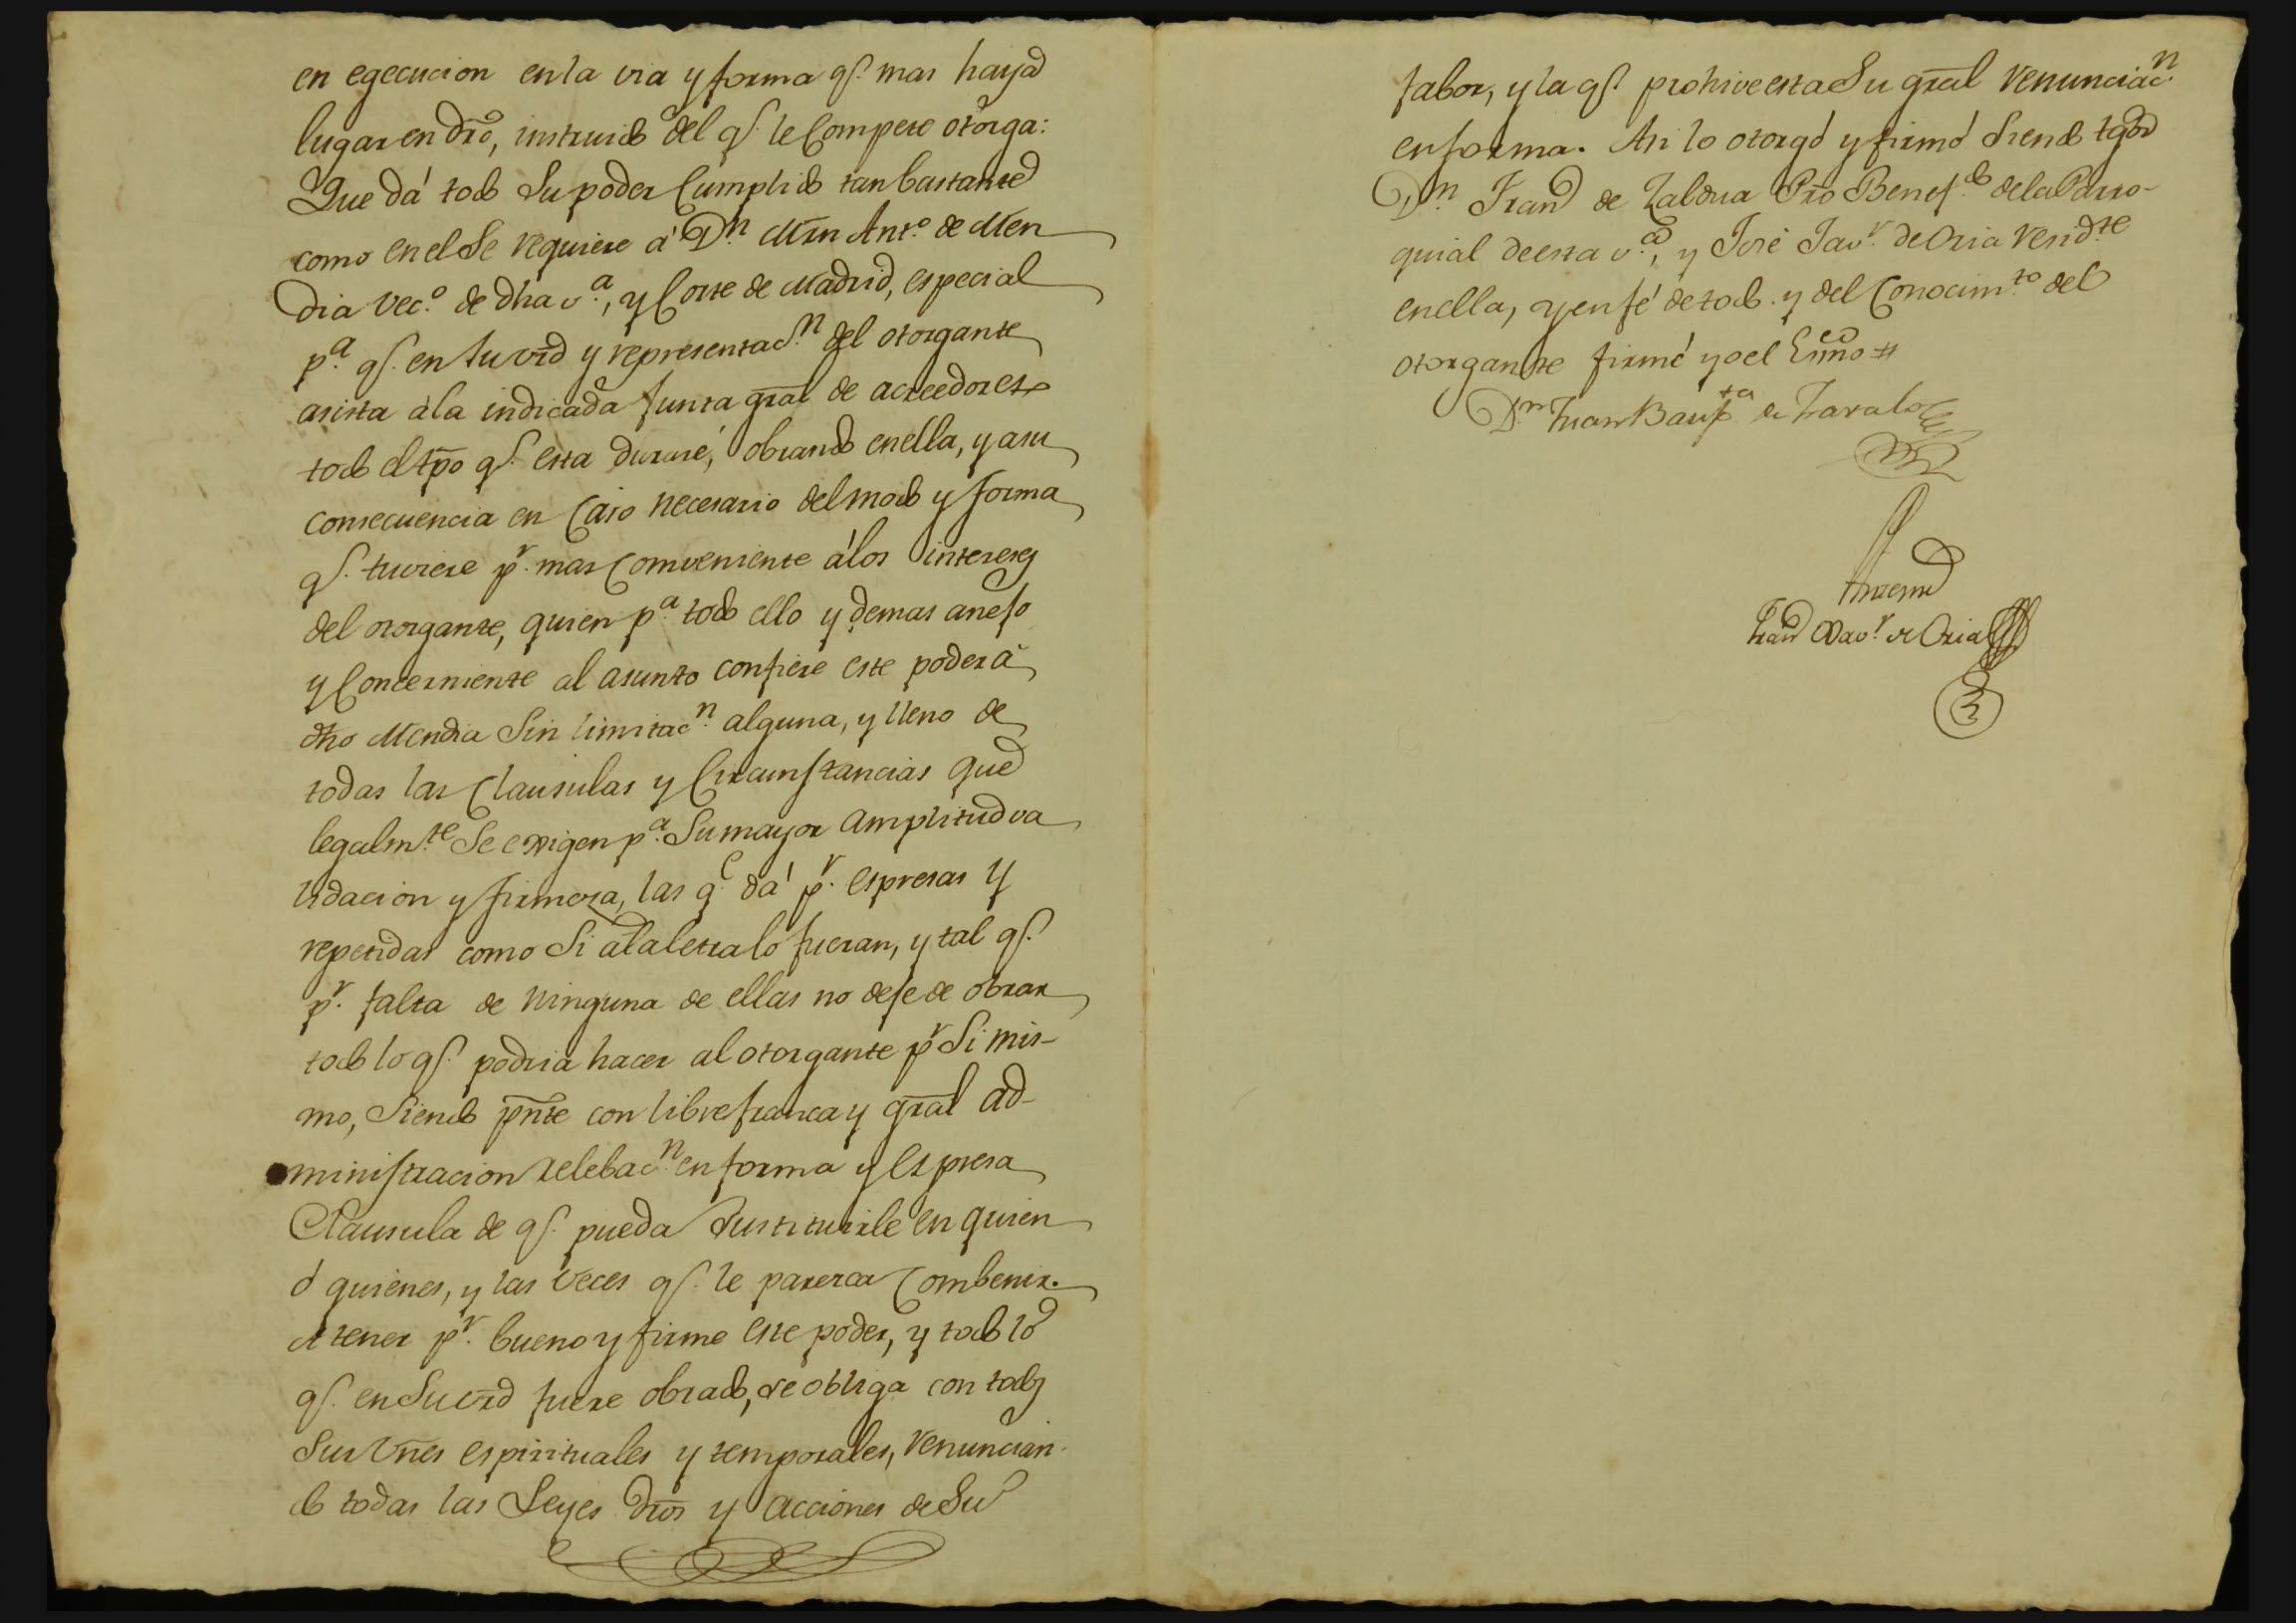 en egecucion en la via y forma q.e mas haya
lugar en dr̄o, instruido del q.e le compete otorga:
Que dá todo su poder cumplido tan bastante
como en el se requiere á D.n Mr̄n Ant.o de Men
dia vec.o de dha v.a, y Corte de Madrid, especial
p.a q.e en su vr̄d y representac.n del otorgante
asista á la indicada Junta gr̄al de acreedores
todo el tp̄o q.e esta durare, obrando en ella, y a su
consecuencia en caso necesario del modo y forma
q.e tuviere p.r mas conveniente á los intereses
del otorgante, quien p.a todo ello y demas anejo
y concerniente al asunto confiere este poder á
dho Mendia sin limitac.n alguna, y lleno de
todas las clausulas y circunstancias que
legalm.te se exigen p.a su mayor amplitud va
lidacion y firmeza, las q.e dá p.r espresas y
repetidas como si á la letra lo fueran, y tal q.e
p.r falta de ninguna de ellas no deje de obrar
todo lo q.e podria hacer al otorgante p.r si mis-
mo, siendo pn̄te con libre franca y gr̄al ad-
ministracion relebac.n en forma y espresa
clausula de q.e pueda sustituirle en quien
ó quienes, y las veces q.e le parezca combenir.
A tener p.r bueno y firme este poder, y todo lo
q.e en su vr̄d fuere obrado, se obliga con todos
sus vn̄es espirituales y temporales, renuncian-
do todas las Leyes dr̄os y acciones de su
fabor, y la q.e prohive esta su gr̄al renunciac.n
en forma. Asi lo otorgó y firmó siendo tgos
D.n Fran.co de Zaldua Pr̄o Benef.do de la Parro-
quial de esta v.a, y José Jav.r de Oria resid.te
en ella, y en fé de todo y del conocim.to del
otorgante firmé yo el Ess.no =
D.n Juan Baup.ta de
Antemi
Fran.co Xav.r de Oria